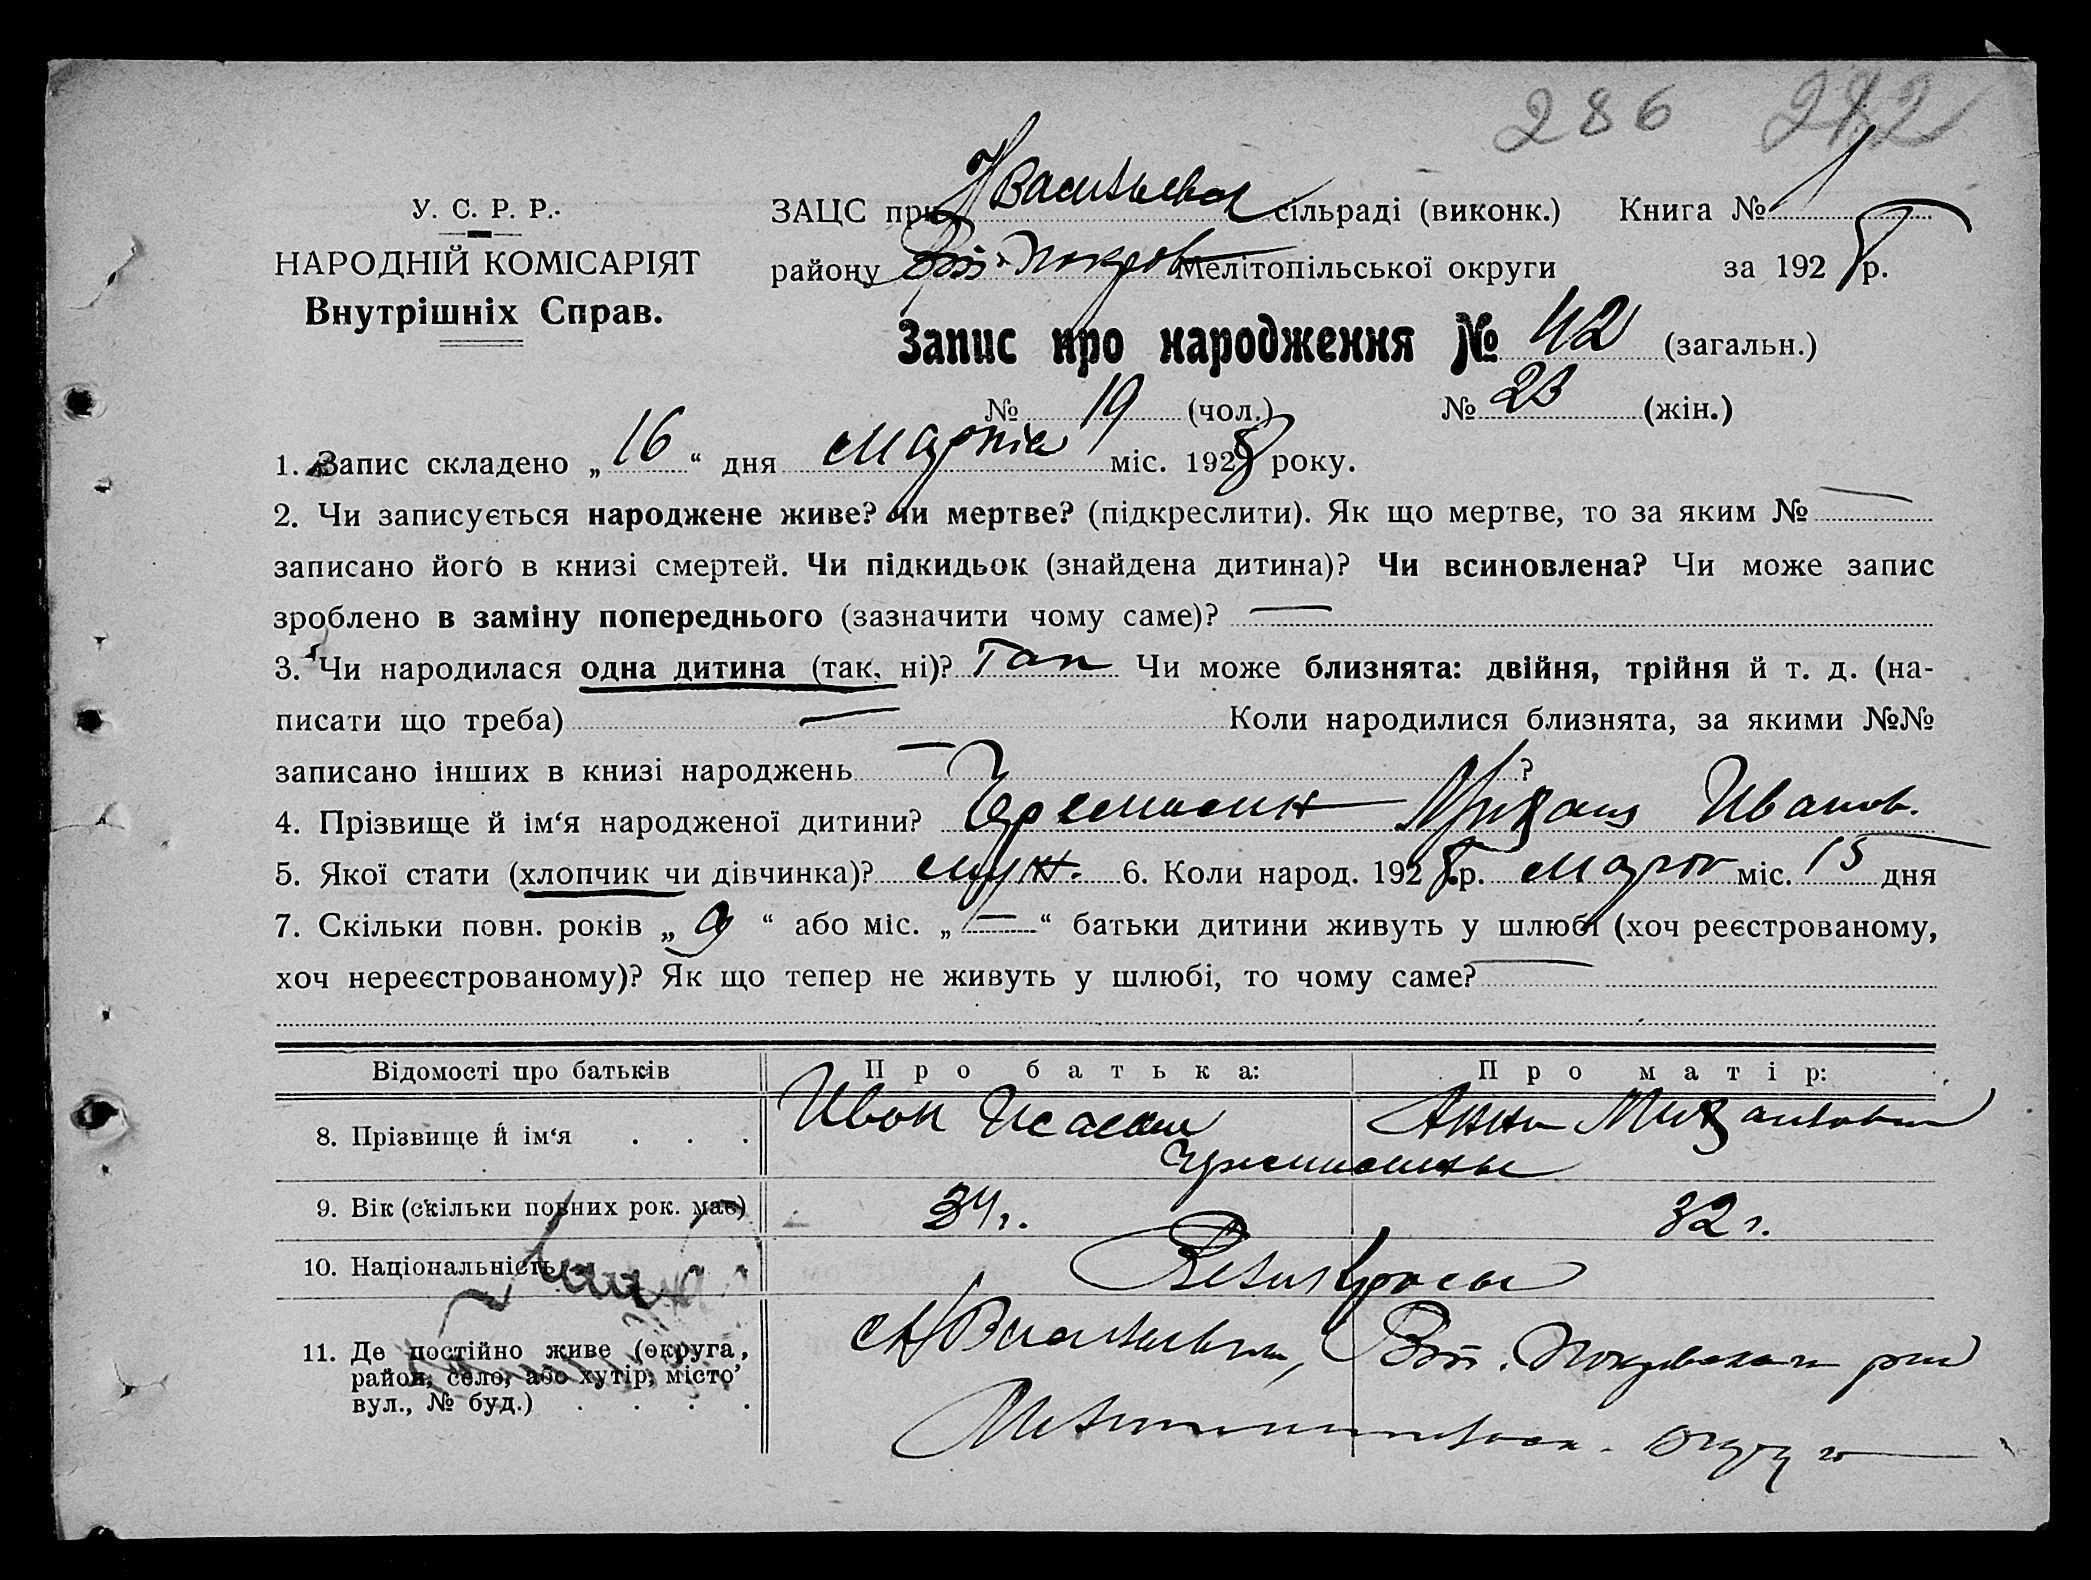 286 282
У. С. Р. Р.
НАРОДНІЙ КОМІСАРІЯТ
Внутрішніх Справ.
ЗАЦС при Н Васильевск сільраді (виконк.) Книга № 1
району Вт. Покров Мелітопільської округи за 1928 р.
Запис про народження № 42 (загальн.)
№ 19 (чол.) № 23 (жін.)
1. Запис складено „ 16 “ дня марта міс. 1928 року.
2. Чи записується народжене живе? чи мертве? (підкреслити). Як що мертве, то за яким № —
записано його в книзі смертей. Чи підкидьок (знайдена дитина)? Чи всиновлена? Чи може запис
зроблено в заміну попереднього (зазначити чому саме)? —
3. Чи народилася одна дитина (так, ні)? Так Чи може близнята: двійня, трійня й т. д. (на-
писати що треба) — Коли народилися близнята, за якими №№
записано інших в книзі народжень — ?
4. Прізвище й ім‘я народженої дитини? Михаил Иванов.
5. Якої стати (хлопчик чи дівчинка)? муж. 6. Коли народ. 1928 р. март міс. 15 дня
7. Скільки повн. років „ 9 “ або міс. „ — “ батьки дитини живуть у шлюбі (хоч реєстрованому,
хоч нереєстрованому)? Як що тепер не живуть у шлюбі, то чому саме? —
Відомості про батьків Про батька: Про матір:
8. Прізвище й ім‘я . . . Иван Анна Михайловна
9. Вік (скільки повних рок. має) 34 г. 32 г.
10. Національність Великоросы
11. Де постійно живе (округа, Н Васильевка, Вт. Покровского р-на
район, село, або хутір, місто
вул., № буд.) . . . . Мелитопольск. округа